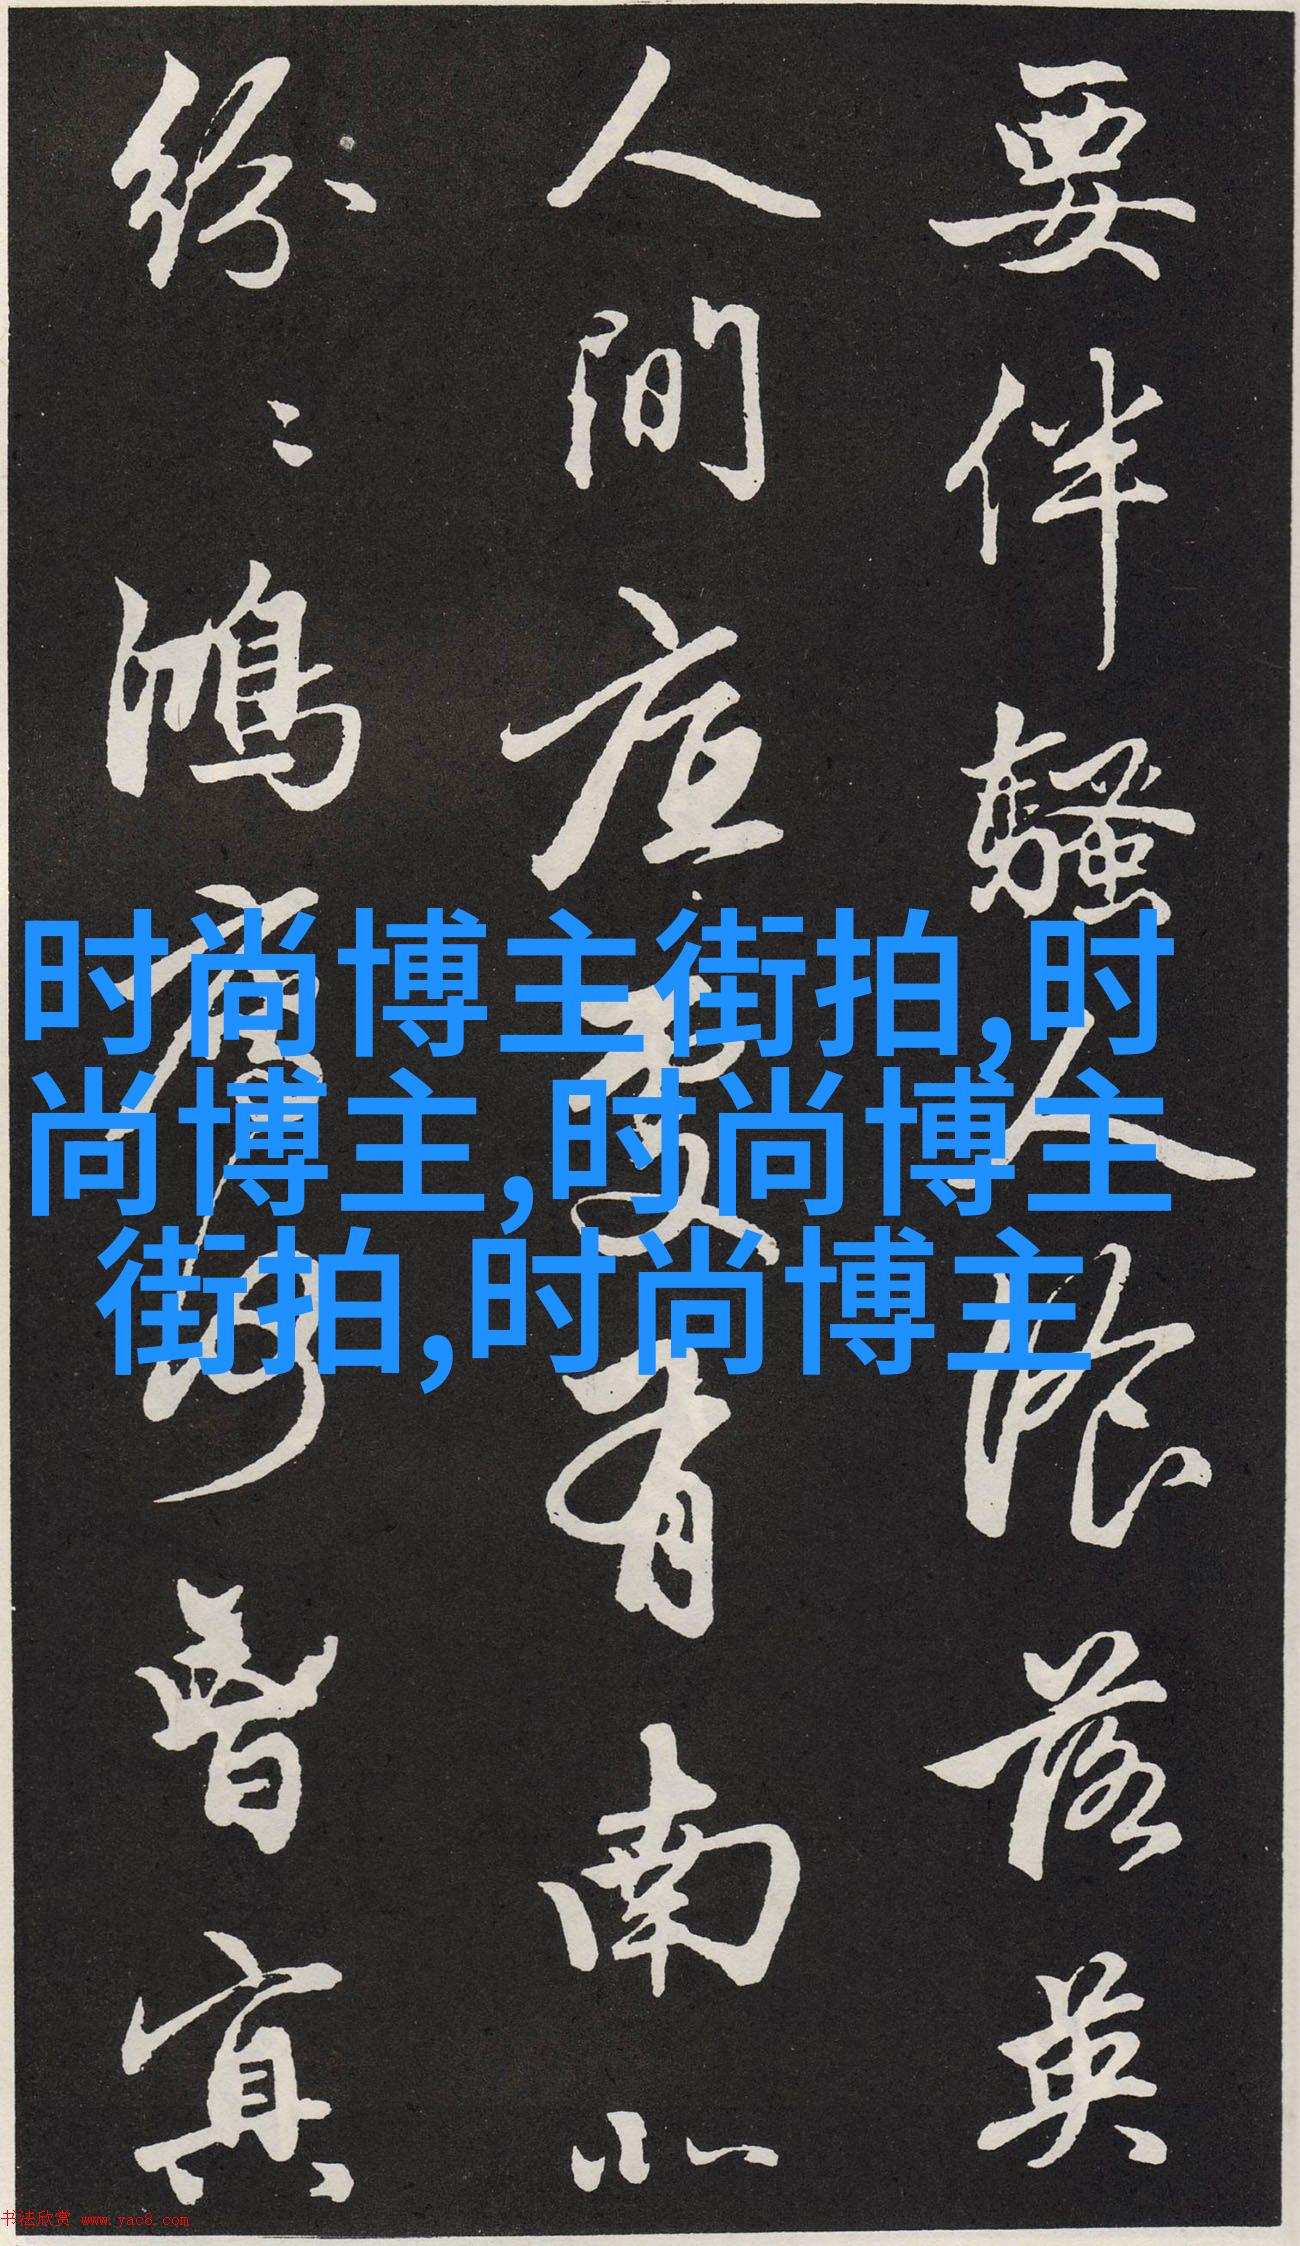 要伴騷人湌落英
人間底處有南北
紛〻鴻雁何曾冥
时尚博主街拍,时
尚博主,时尚博主
街拍,时尚博主
书法欣赏 www.yac8.com